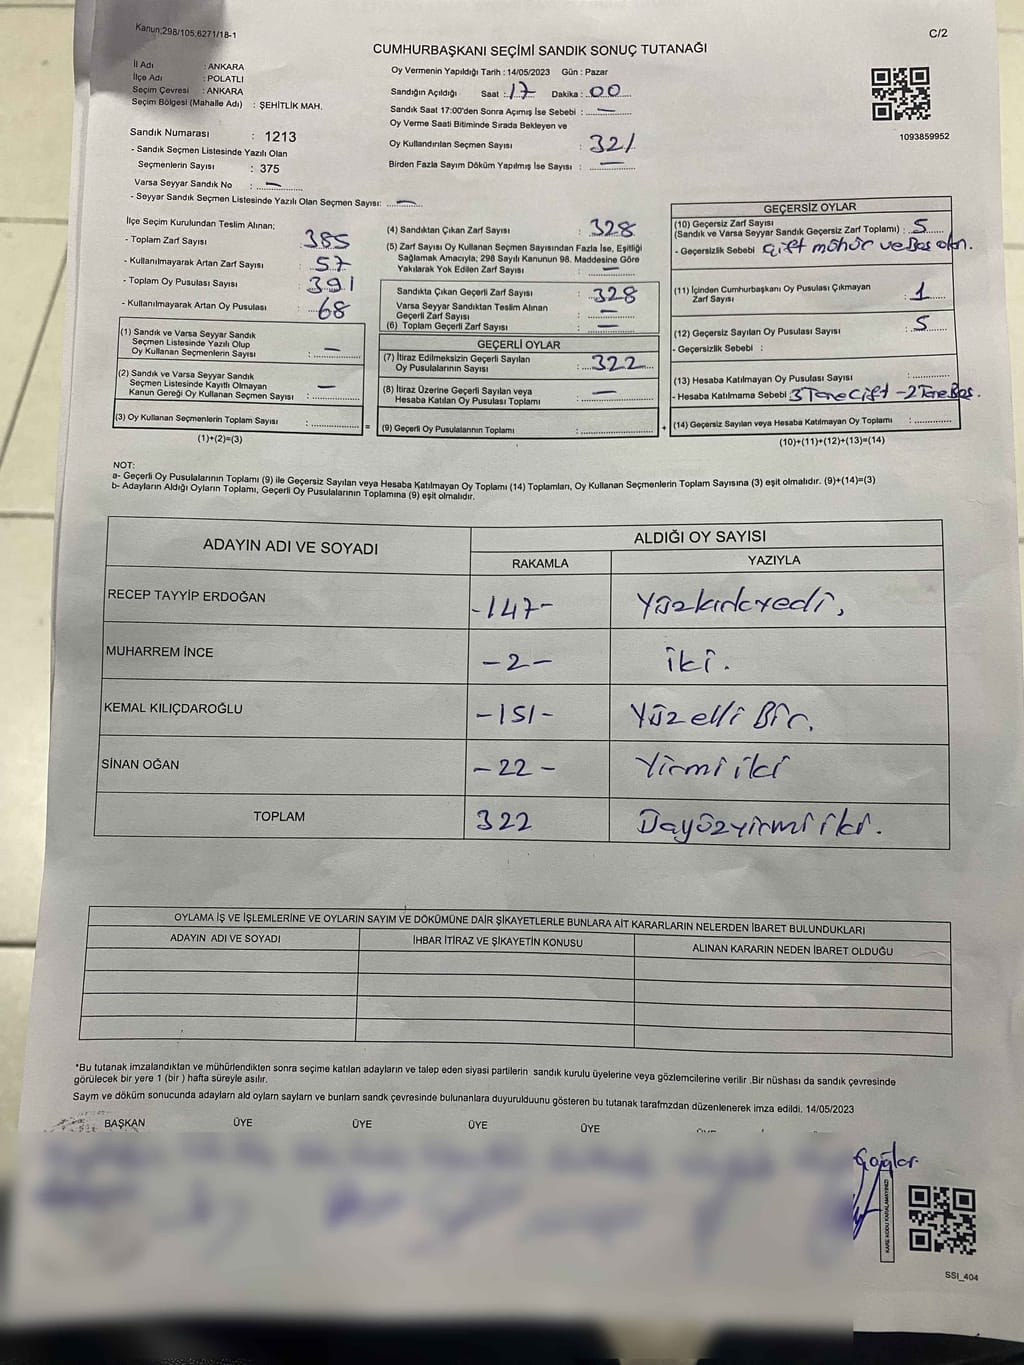 Kanun;298/105,6271/18-1
C/2
CUMHURBAŞKANI SEÇİMİ SANDIK SONUÇ TUTANAĞI
İl Adı : ANKARA
İlçe Adı : POLATLI
Seçim Çevresi : ANKARA
Seçim Bölgesi (Mahalle Adı) : ŞEHİTLİK MAH.
Sandık Numarası : 1213
- Sandık Seçmen Listesinde Yazılı Olan
Seçmenlerin Sayısı : 375
Varsa Seyyar Sandık No : —
- Seyyar Sandık Seçmen Listesinde Yazılı Olan Seçmen Sayısı: —
Oy Vermenin Yapıldığı Tarih : 14/05/2023 Gün : Pazar
Sandığın Açıldığı Saat : 17 Dakika : 00
Sandık Saat 17:00'den Sonra Açımış İse Sebebi : —
Oy Verme Saati Bitiminde Sırada Bekleyen ve
Oy Kullandırılan Seçmen Sayısı : 321
Birden Fazla Sayım Döküm Yapılmış İse Sayısı : —
1093859952
İlçe Seçim Kurulundan Teslim Alınan:
- Toplam Zarf Sayısı : 385
- Kullanılmayarak Artan Zarf Sayısı : 57
- Toplam Oy Pusulası Sayısı : 391
- Kullanılmayarak Artan Oy Pusulası : 68
(1) Sandık ve Varsa Seyyar Sandık
Seçmen Listesinde Yazılı Olup
Oy Kullanan Seçmenlerin Sayısı : —
(2) Sandık ve Varsa Seyyar Sandık
Seçmen Listesinde Kayıtlı Olmayan
Kanun Gereği Oy Kullanan Seçmen Sayısı : —
(3) Oy Kullanan Seçmenlerin Toplam Sayısı :
(1)+(2)=(3)
(4) Sandıktan Çıkan Zarf Sayısı : 328
(5) Zarf Sayısı Oy Kullanan Seçmen Sayısından Fazla İse, Eşitliği
Sağlamak Amacıyla; 298 Sayılı Kanunun 98. Maddesine Göre
Yakılarak Yok Edilen Zarf Sayısı : —
Sandıkta Çıkan Geçerli Zarf Sayısı : 328
Varsa Seyyar Sandıktan Teslim Alınan
Geçerli Zarf Sayısı : —
(6) Toplam Geçerli Zarf Sayısı : —
GEÇERLİ OYLAR
(7) İtiraz Edilmeksizin Geçerli Sayılan
Oy Pusulalarının Sayısı : 322
(8) İtiraz Üzerine Geçerli Sayılan veya
Hesaba Katılan Oy Pusulası Toplamı : —
(9) Geçerli Oy Pusulalarının Toplamı :
GEÇERSİZ OYLAR
(10) Geçersiz Zarf Sayısı
(Sandık ve Varsa Seyyar Sandık Geçersiz Zarf Toplamı) : 5
- Geçersizlik Sebebi Çift mühür ve Boş olan.
(11) İçinden Cumhurbaşkanı Oy Pusulası Çıkmayan
Zarf Sayısı : 1
(12) Geçersiz Sayılan Oy Pusulası Sayısı : 5
- Geçersizlik Sebebi :
(13) Hesaba Katılmayan Oy Pusulası Sayısı :
- Hesaba Katılmama Sebebi 3 Tane Çift - 2 Tane Boş.
(14) Geçersiz Sayılan veya Hesaba Katılmayan Oy Toplamı :
(10)+(11)+(12)+(13)=(14)
NOT:
a- Geçerli Oy Pusulalarının Toplamı (9) ile Geçersiz Sayılan veya Hesaba Katılmayan Oy Toplamı (14) Toplamları, Oy Kullanan Seçmenlerin Toplam Sayısına (3) eşit olmalıdır. (9)+(14)=(3)
b- Adayların Aldığı Oyların Toplamı, Geçerli Oy Pusulalarının Toplamına (9) eşit olmalıdır.
ADAYIN ADI VE SOYADI
ALDIĞI OY SAYISI
RAKAMLA YAZIYLA
RECEP TAYYİP ERDOĞAN -147- Yüzkırkyedi.
MUHARREM İNCE -2- iki.
KEMAL KILIÇDAROĞLU -151- Yüz elli Bir.
SİNAN OĞAN -22- Yirmi iki
TOPLAM 322
OYLAMA İŞ VE İŞLEMLERİNE VE OYLARIN SAYIM VE DÖKÜMÜNE DAİR ŞİKAYETLERLE BUNLARA AİT KARARLARIN NELERDEN İBARET BULUNDUKLARI
ADAYIN ADI VE SOYADI İHBAR İTİRAZ VE ŞİKAYETİN KONUSU ALINAN KARARIN NEDEN İBARET OLDUĞU
*Bu tutanak imzalandıktan ve mühürlendikten sonra seçime katılan adayların ve talep eden siyasi partilerin sandık kurulu üyelerine veya gözlemcilerine verilir .Bir nüshası da sandık çevresinde
görülecek bir yere 1 (bir ) hafta süreyle asılır.
Saym ve döküm sonucunda adaylarn ald oylarn saylarn ve bunlarn sandk çevresinde bulunanlara duyurulduunu gösteren bu tutanak tarafmzdan düzenlenerek imza edildi. 14/05/2023
BAŞKAN ÜYE ÜYE ÜYE ÜYE
Çağlar
KARE KODU KARALAMAYINIZ!
SSI_404